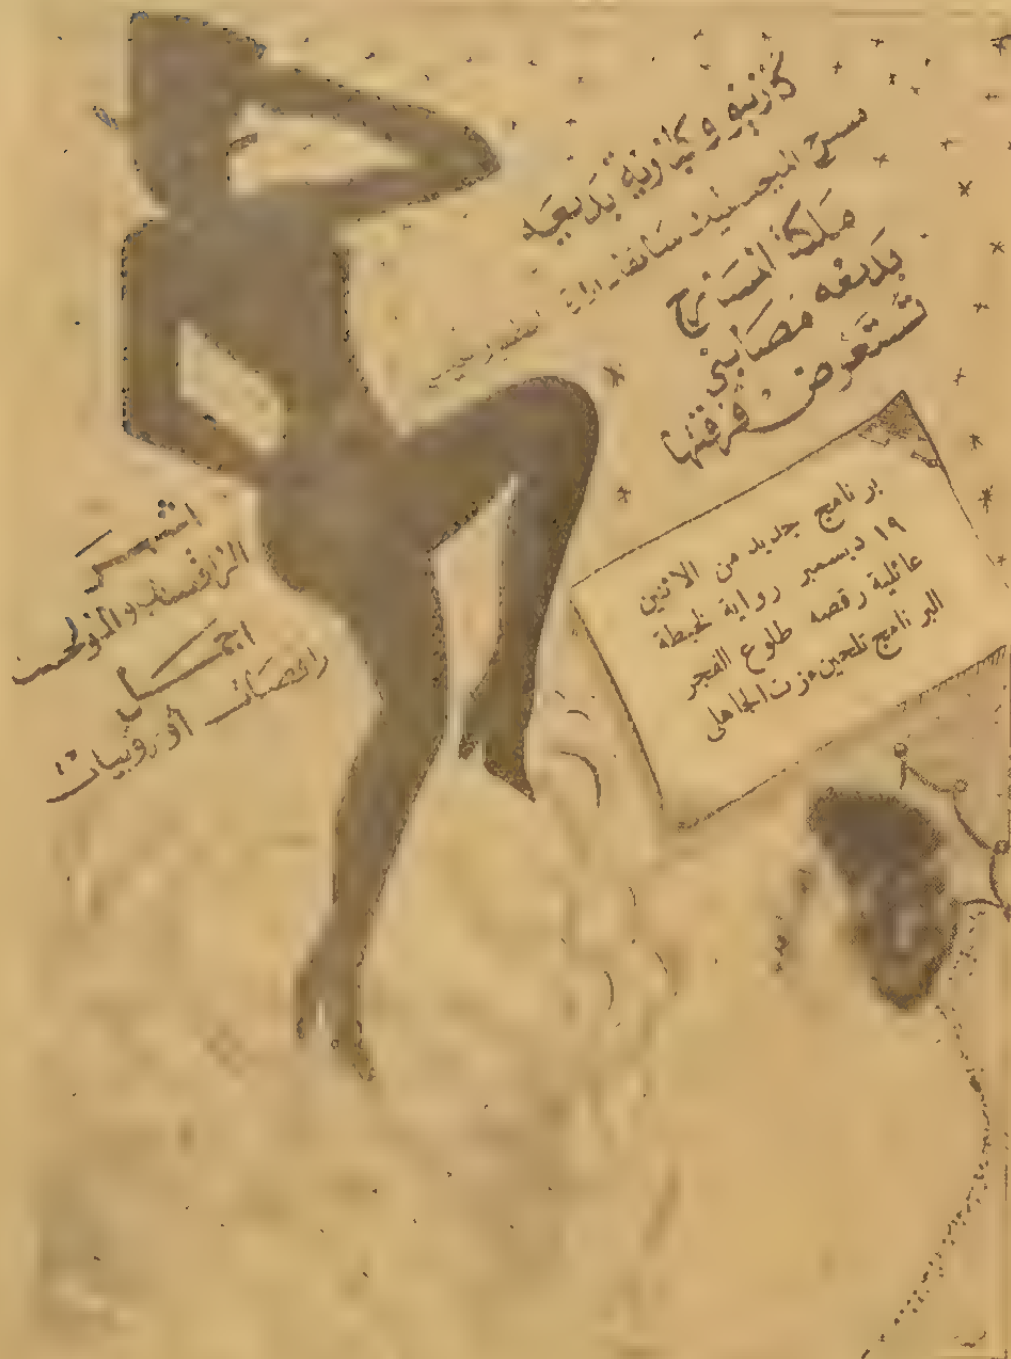 كازينو وكازينه بديعه
مسرح الميجستيك سابقا
ملكة المسرح
بديعه مصابنى
تستعرض فرقتها
برنامج جديد من الاثنين
١٩ ديسمبر رواية لخبطة
عائلية رقصه طلوع الفجر
البرنامج تلحين عزت الجاهلى
اشهر
الراقصات والمونولجست
اجمل
راقصات أوروبيات